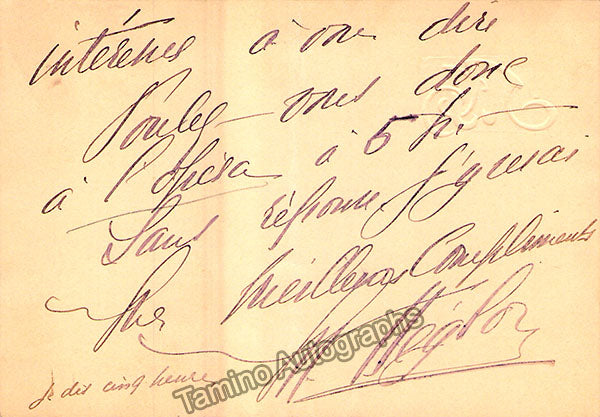 intéresses à vous dire
Voulez-vous donc
à l'opéra à 5 h.
Sans réponse j'y serai
Mes meilleurs compliments
Héglon
je dis cinq heure
Tamino Autographs